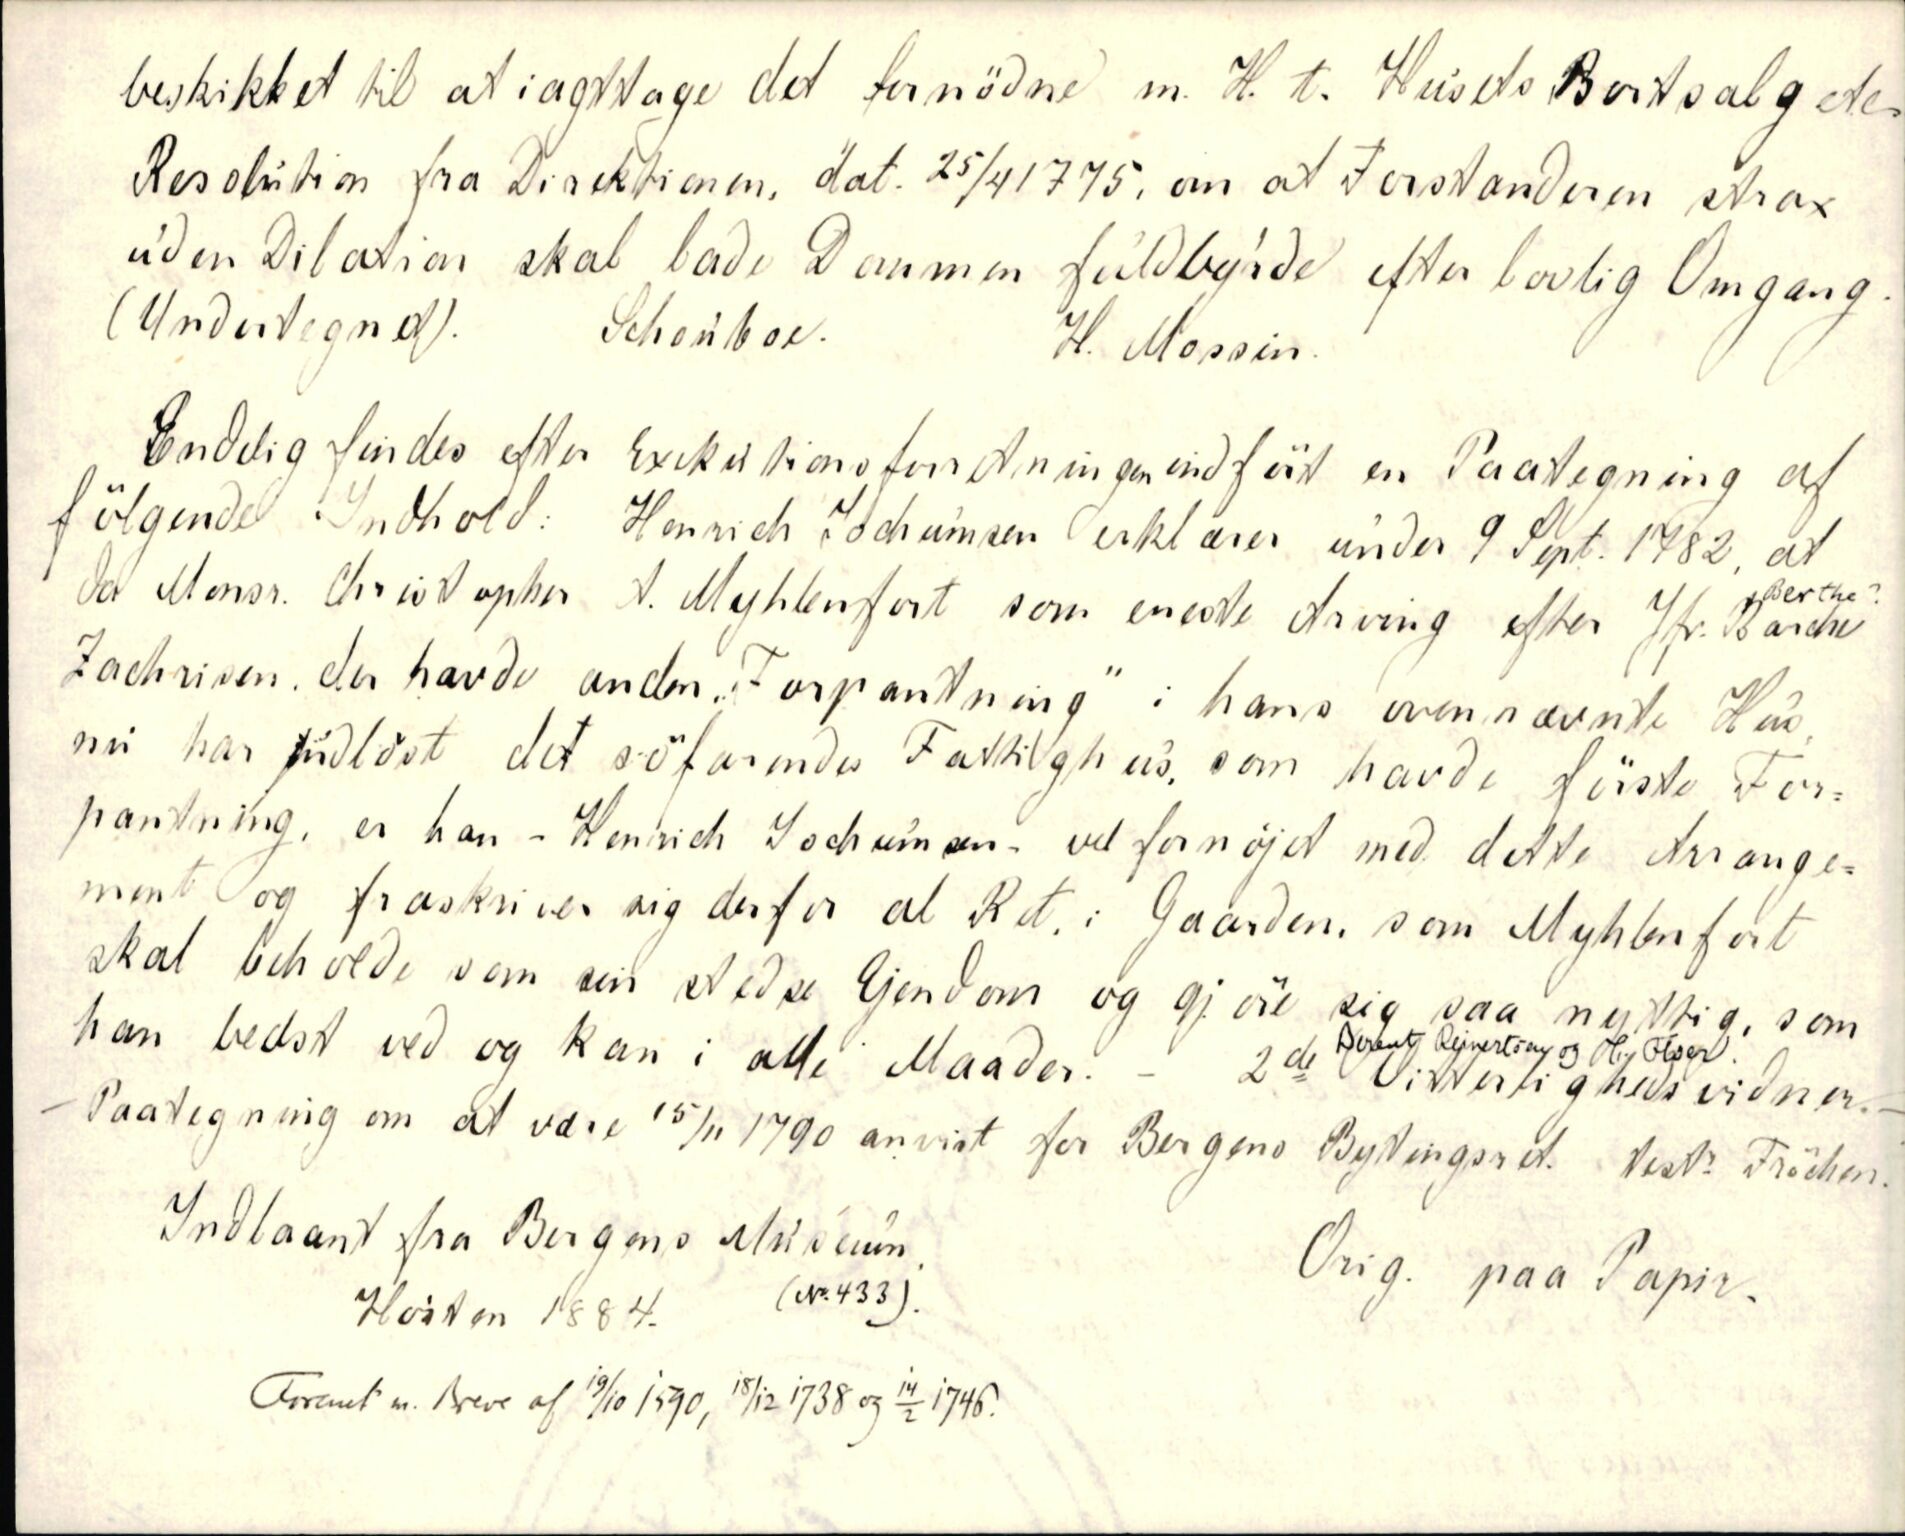 beskikket til at iagttage det fornödne m. H. t. Husets Bortsalg etc.
Resolution fra Direktionen, dat. 25/4 1775, om at Forstanderen strax
uden Dilation skal lade Dommen fuldbyrde efter lovlig Omgang.
(Undertegnet). Schouboe. H. Mossin.
Endelig findes efter Exekutionsforretningen indfört en Paategning af
fölgende Indhold: Henrich Jochumsen erklærer under 9 Sept. 1782, at
da Monsr. Christopher t. Myhlenfort som eneste Arving efter Jfr. Barche
Berthe?
Zachrisen, der havde anden "Forpantning" i hans ovennævnte Hus,
nu har udlöst det söfarendes Fattighus, som havde förste For=
pantning, er han - Henrich Jochumsen - vel fornöjet med dette Arrange=
ment og fraskriver sig derfor al Ret i Gaarden, som Myhlenfort
skal beholde som sin stedse Ejendom og gjöre sig saa nyttig, som
han bedst ved og kan i alle Maader. - 2de Vitterlighedsvidner. -
Berent Rejnertsen og
- Paategning om at være 15/11 1790 anvist for Bergens Bytingsret. testr Fröchen.
Indlaant fra Bergens Museum. Orig. paa Papir.
Hösten 1884. (No. 433).
Forenet m. Breve af 19/10 1590, 18/12 1738 og 14/2 1746.